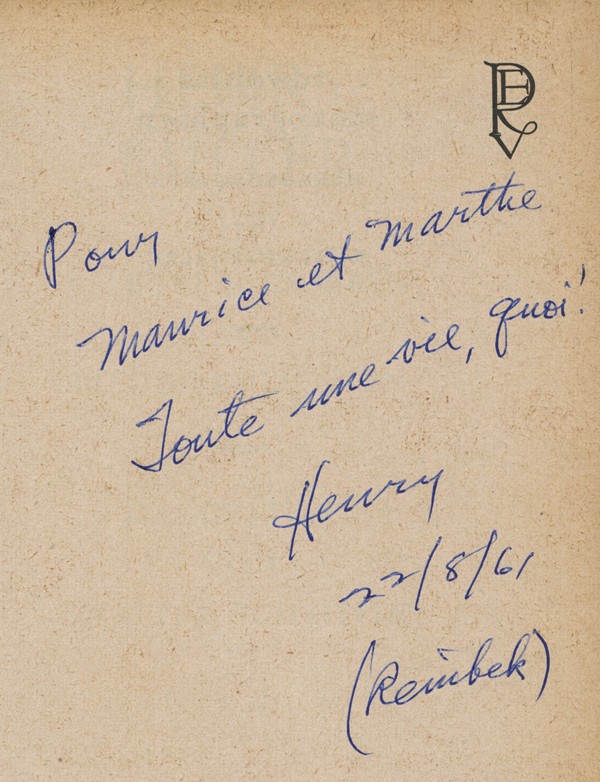 Pour
Maurice et Marthe
Toute une vie, quoi!
Henry
22/8/61
(Reinbek)